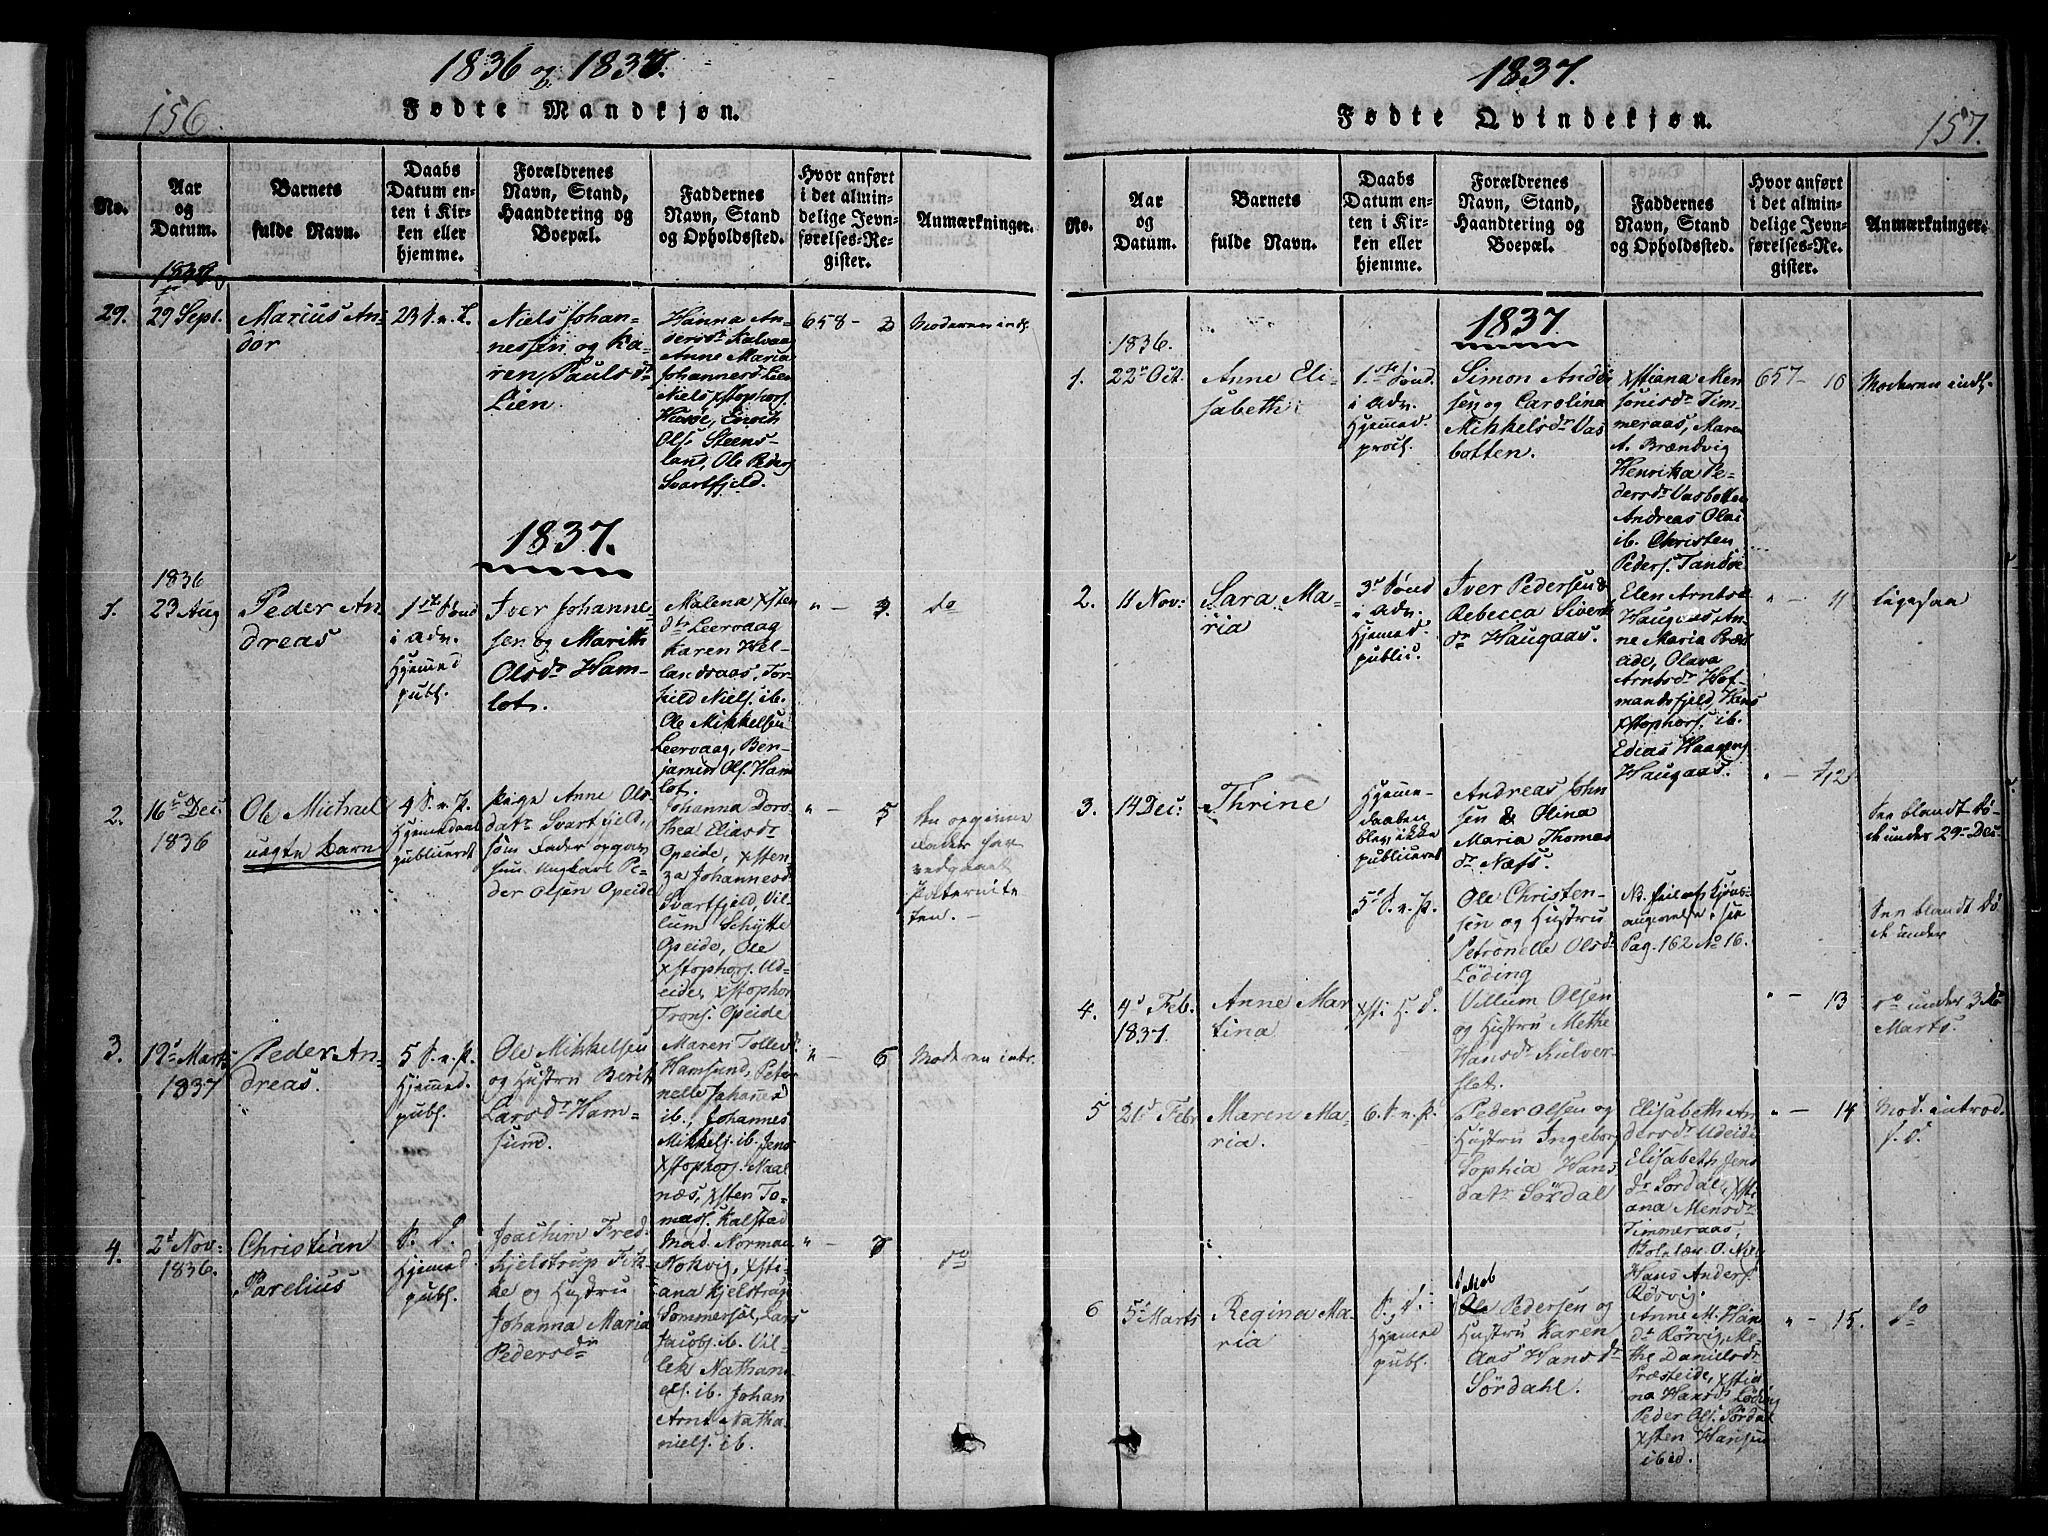 1836 og 1837.
156.
Fødte Mandkjøn.
No.
Aar
og
Datum.
Barnets
fulde Navn.
Daabs
Datum en-
ten i Kir-
ken eller
hjemme.
Forældrenes
Navn, Stand,
Haandtering og
Boepæl.
Faddernes
Navn, Stand
og Opholdssted.
Hvor anført
i det almin-
delige Jevn-
førelses-Re-
gister.
Anmærkninger.
29.
29 Sept.
Marius An-
dor
23 S. n. T.
Niels Johan-
nessen og Ka-
ren Paulsdr
Lien
Hanna An-
dersdr Kalvaas
Anne Maria
Johannesd. Lien
Niels Xstophers.
Enoch
Ols. Steens-
land, Ole Peders.
Svartfjeld.
658 - 2
Moderen indl.
1837.
1.
1836
23 Aug
Peder An-
dreas
1ste Sønd
i Adv.
Hjemmed.
publ.
Iver Johanne-
sen og Marith
Olsdr Ham-
lot.
Malena Xsten
dtr Leervaag
Karen Hel-
landsaas, Tor-
kild Niels. ib.
Ole Mikkelsen
Leervaag, Ben-
jamin Ols. Ham
lot.
" - 3.
do
2.
16 Dec.
1836
Ole Michael
uægte Barn
4 S. n. P.
Hjemmedaab
publiceret
Pige Anne Ols-
datr Svartfjeld,
som Fader opgav
hun Ungkarl Pe-
der Olsen Opeide
Johanna Doro-
thea Eliasdr
Opeide, Xsten-
za Johannesd.
Svartfjeld, Vil-
lum Schytte
Opeide, Ole
Xstophers. Ud-
eide, Xstopher
Trons. Opeide
" - 5
Den opgivne
Fader har
vedgaaet
Paternite-
ten. -
3.
19d Marts
1837
Peder An-
dreas.
5 S. n. P.
Hjemmed.
publ.
Ole Mikkelsen
og Hustru Berit
Larsdr Ham-
sum.
Maren Tollevd.
Hamsund, Peter-
nelle Johanned
ib., Johannes
Mikkels. ib. Jens
Xstophers. Naal-
næs, Xsten To-
mass. Kalstad
" - 6
Moderen intr.
4.
2d Nov.
1836.
Christian
Parelius
S. D.
Hjemmed
publ.
Joachim Fred-
Kjelstrup Fik-
ke og Hustru
Johanna Maria
Pedersdr
Mad. Norman
Nokvig, Xsti-
ana Kjelstrup
Sommersæl, Lars
Jacobs. A. Vil-
lek Nathani-
els. ib. Johan
Arnt Natha-
niels. ib.
" - 7
do
1837.
157.
Fødte Qvindekjøn.
No.
Aar
og
Datum.
Barnets
fulde Navn.
Daabs
Datum en-
ten i Kir-
ken eller
hjemme.
Forældrenes
Navn, Stand,
Haandtering og
Boepæl.
Faddernes
Navn, Stand
og Opholdssted.
Hvor anført
i det almin-
delige Jevn-
førelses-Re-
gister.
Anmærkninger.
1837.
1.
1836.
22de Oct.
Anne Eli-
sabeth
1ste Sønd.
i Adv.
Hjemmed.
procl.
Simon Andør
sen og Carolina
Mikkelsdr Vas
botten.
Xstiana Men-
sonisdr Tim-
meraas, Maren
A. Brændvig
Henrikka Pe-
dersdr Vasbotten
Andreas Olai
ib. Christen
Peders. Tandøe
657 - 10
Moderen indl.
2.
11 Nov:
Sara Ma-
ria
3d Sønd
i Adv.
Hjemmed.
public.
Iver Pedersen &
Rebecca Siverts
dr Haugaas.
Elen Arntsdr
Haugaas, An-
ne Maria Præst
eide, Olava
Arntsdr Hof-
mandsfjeld, Hans
Xstophers. ib.
Edias Haagens.
Haugaas.
" - 11
ligesaa
3.
14 Dec:
Thrine
Hjemme-
daaben
blev ikke
publiceret
Andreas John
sen & Olina
Maria Thomas
dr Næss.
" - 12
See blandt Dø-
de under 29de Dec.
5d S. n. P.
Ole Christen-
sen og Hustru
Petronelle Olsdr
Løding
Nb. feil af Kjøns-
angivelse, see
Pag. 162 No 16.
See blandt Dø
de under
4.
4d Feb.
1837.
Anne Mar
tina
Xsti H. D.
Villum Olsen
og Hustru Methe
Hansdr Kulver-
slet.
" - 13
do under 3de
Marts.
5
21d Febr
Maren Ma-
ria.
6. S. n. P.
Peder Olsen og
Hustru Ingeborg
Sophia Hans
datr Sørdal
Elisabeth An-
dersdr Udeide
Elisabeth Jens
dr Sørdal, Xsti-
ana Mensdr
Timmeraas,
O. Niels
Hans Anders.
Rørvig.
" - 14
Mod. introd.
s. D.
6
5d Marts
Regina Ma-
ria
S. D.
Hjemmed
publ.
Jakob
Ole Pedersen og
Hustru Karen
Aas Hansdr
Sørdahl.
Anne M. Han
dr Rørvig, Me-
the Danielsdr
Præsteide, Xstia
na Hansd. Løding
Peder Ols. Sørdal
Xsten Hansen
ibid.
" - 15.
do